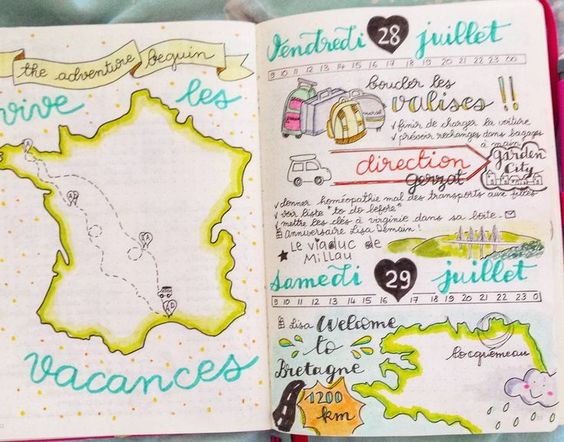 the adventure beguin
vive les
vacances
Vendredi 28 juillet
9 10 11 12 13 14 15 16 17 18 19 20 21 22 23 00
boucler les
valises !!
✓ finir de charger la voiture
✓ prévoir rechanges dans bagages
à main
direction
gerzat
garden
City
✓ donner homéopathie mal des transports aux filles
✓ voir liste "to do before"
✓ mettre les clés à virginie dans sa boite.
Anniversaire Lisa Demain!
★ Le viaduc de
Millau
Samedi 29 juillet
9 10 11 12 13 14 15 16 17 18 19 20 21 22 23 0
Lisa Welcome
to
Bretagne
1200
km
Locquémeau